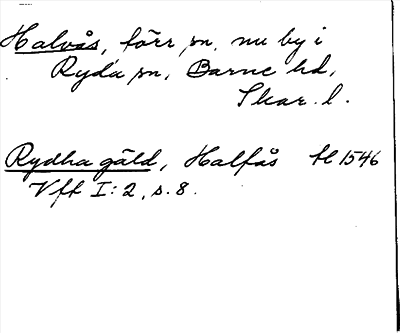 Halvås, förr sn, nu by i
Ryda sn, Barne hd,
Skar. l.
Rydha gäld, Halfås tl 1546
Vft I:2, s. 8.